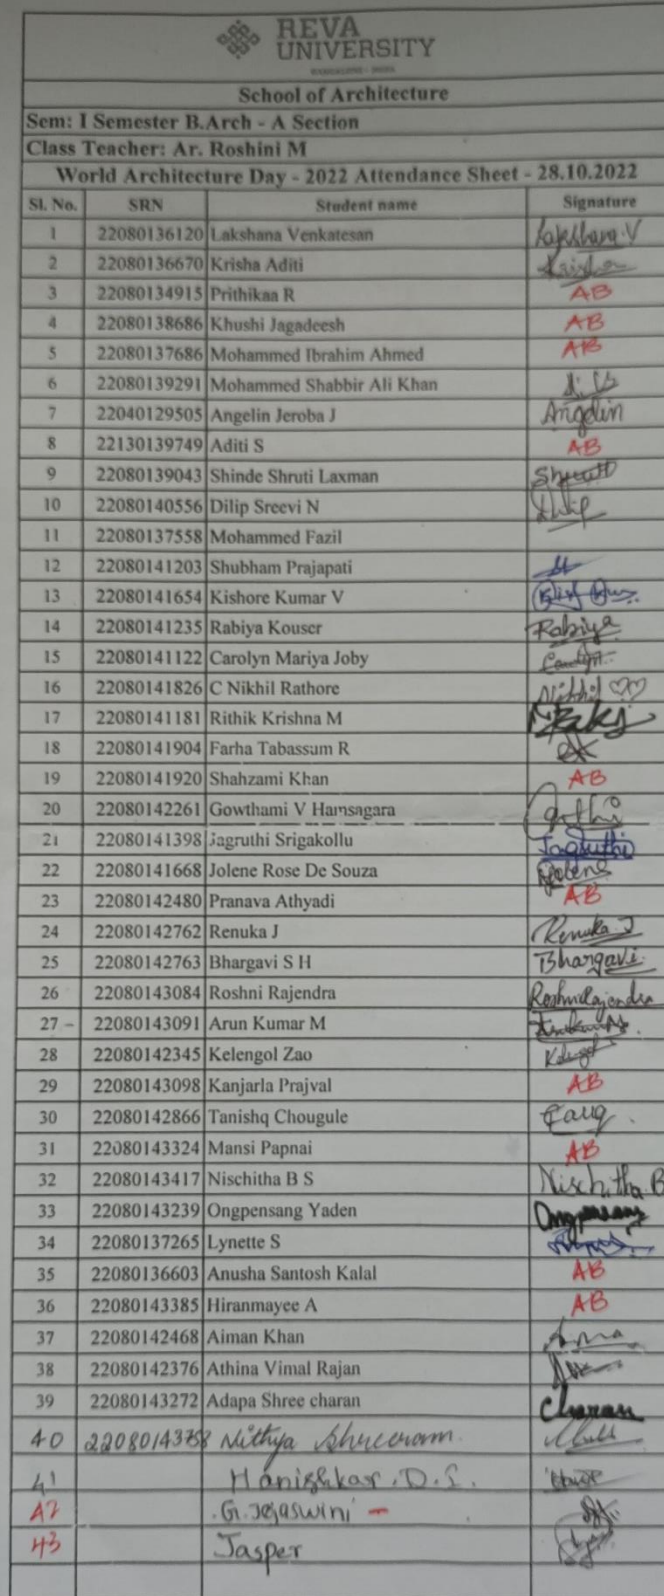 REVA
UNIVERSITY
School of Architecture
Sem: I Semester B.Arch - A Section
Class Teacher: Ar. Roshini M
World Architecture Day - 2022 Attendance Sheet - 28.10.2022
Sl. No. SRN Student name Signature
1 22080136120 Lakshana Venkatesan Lakshana.V
2 22080136670 Krisha Aditi
3 22080134915 Prithikaa R AB
4 22080138686 Khushi Jagadeesh AB
5 22080137686 Mohammed Ibrahim Ahmed AB
6 22080139291 Mohammed Shabbir Ali Khan
7 22040129505 Angelin Jeroba J Angelin
8 22130139749 Aditi S AB
9 22080139043 Shinde Shruti Laxman
10 22080140556 Dilip Sreevi N Dilip
11 22080137558 Mohammed Fazil
12 22080141203 Shubham Prajapati
13 22080141654 Kishore Kumar V
14 22080141235 Rabiya Kouser Rabiya
15 22080141122 Carolyn Mariya Joby
16 22080141826 C Nikhil Rathore Nikhil ♡♡
17 22080141181 Rithik Krishna M
18 22080141904 Farha Tabassum R
19 22080141920 Shahzami Khan AB
20 22080142261 Gowthami V Hamsagara
21 22080141398 Jagruthi Srigakollu Jagruthi
22 22080141668 Jolene Rose De Souza Jolene
23 22080142480 Pranava Athyadi AB
24 22080142762 Renuka J Renuka J
25 22080142763 Bhargavi S H Bhargavi
26 22080143084 Roshni Rajendra Roshni Rajendra
27 - 22080143091 Arun Kumar M
28 22080142345 Kelengol Zao
29 22080143098 Kanjarla Prajval AB
30 22080142866 Tanishq Chougule
31 22080143324 Mansi Papnai AB
32 22080143417 Nischitha B S Nischitha B
33 22080143239 Ongpensang Yaden Ongpensang
34 22080137265 Lynette S
35 22080136603 Anusha Santosh Kalal AB
36 22080143385 Hiranmayee A AB
37 22080142468 Aiman Khan
38 22080142376 Athina Vimal Rajan
39 22080143272 Adapa Shree charan Charan
40 22080143758 Nithya Shreeram
41 Hanishkar. D. S.
42 G. Tejaswini -
43 Jasper